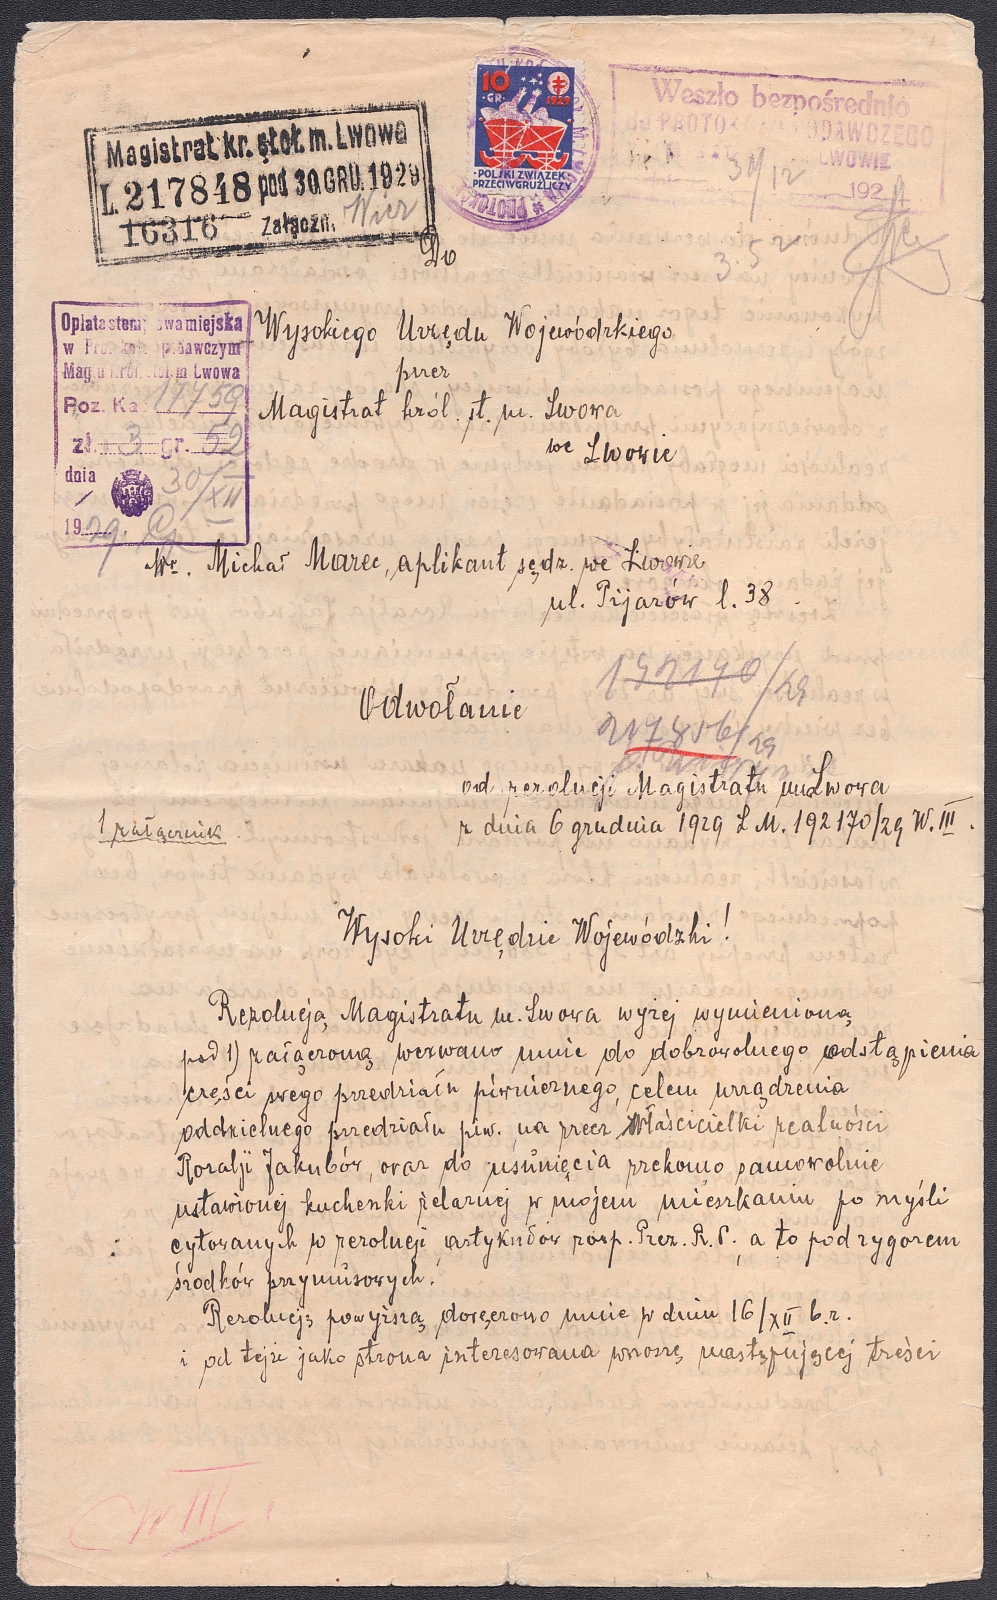 10
GR.
1929
POLSKI ZWIĄZEK
PRZECIWGRUŹLICZY
Weszło bezpośrednio
do PROTOK PODAWCZEGO
LWOWIE
30/12 192
3.52
Magistrat kr. stoł. m. Lwowa
L. 217848 pod 30.GRU.1929
16316 Załączn.
Do
Wysokiego Urzędu Wojewódzkiego
przez
Magistrat król. st. m. Lwowa
we Lwowie
Opłata stemplowa miejska
w Protokole podawczym
Mag. Król. stoł. m Lwowa
Poz. Ka 17459
zł. 3 gr. 52
dnia 30/XII
1929.
Michał Marzec, aplikant sędz. we Lwowie
ul. Pijarów l. 38
192170/29
Odwołanie
217856/29
od rezolucji Magistratu m. Lwowa
z dnia 6 grudnia 1929 L M. 192170/29 W. III.
1 załącznik
Wysoki Urzędzie Wojewódzki!
Rezolucją Magistratu m. Lwowa wyżej wymienioną
pod 1) załączoną wezwano mnie do dobrowolnego odstąpienia
części mego przedziału piwnicznego, celem urządzenia
oddzielnego przedziału piw. na przez Właścicielki realności
Rozalji Jakubów, oraz do usunięcia rzekomo samowolnie
ustawionej kuchenki żelaznej w mojem mieszkaniu po myśli
cytowanych w rezolucji artykułów rozp. Prez. R.P., a to pod rygorem
środków przymusowych.
Rezolucję powyższą doręczono mnie w dniu 16/XII b.r.
i od tejże jako strona interesowana wnoszę następującej treści
W III